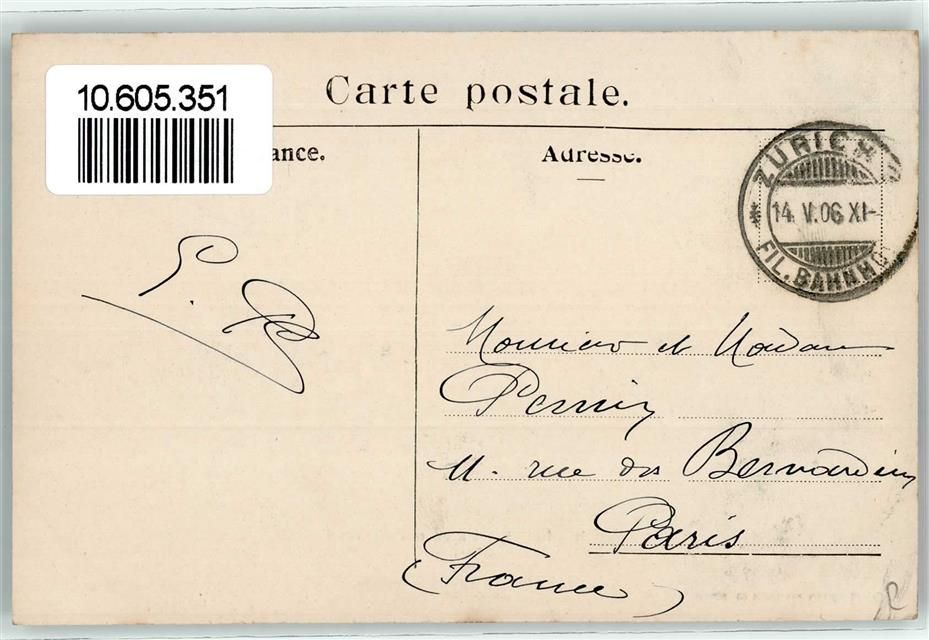 10.605.351
Carte postale.
ance.
Adresse.
ZÜRICH
14. V. 06 XI-
FIL. BAHNH
Monsieur et Madame
Perrin
11. rue des Bernardins
Paris
(France)